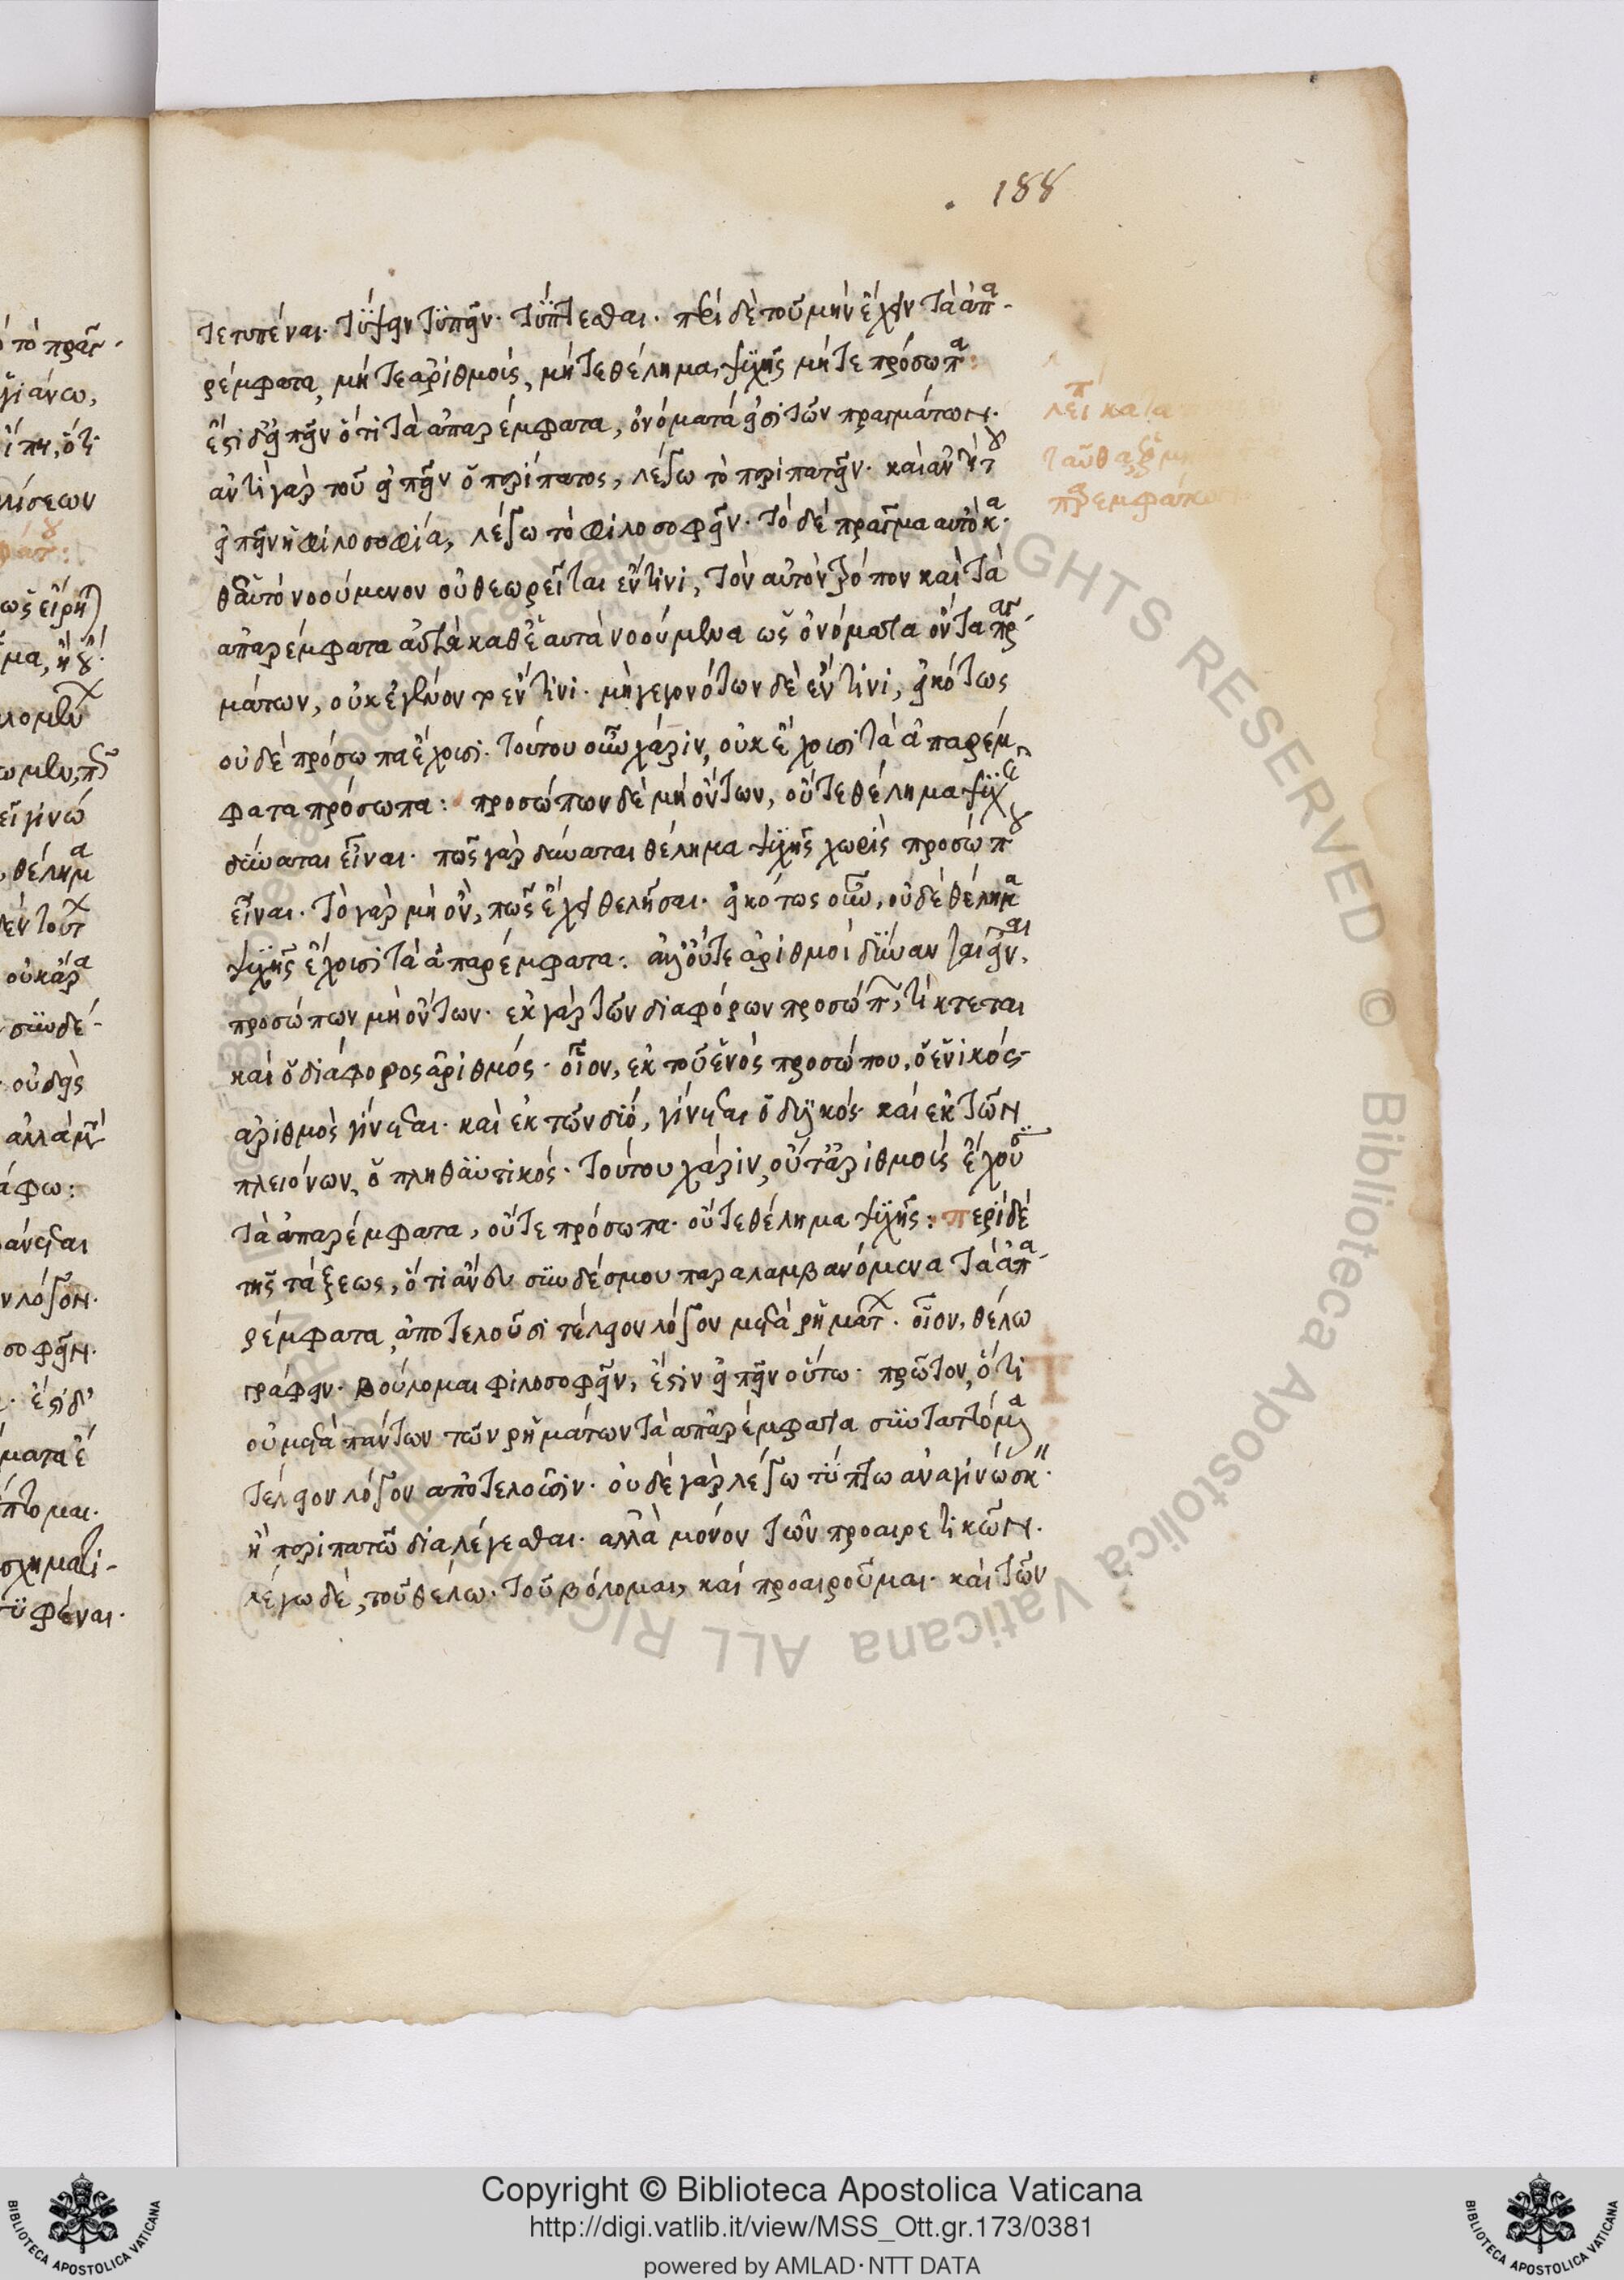 188
τετυπέναι. τύψειν τυπεῖν. τύπτεσθαι. περὶ δὲ τοῦ μὴν ἔχειν τὰ ἀπα-
ρέμφατα, μήτε ἀριθμοὺς, μήτε θέλημα ψυχῆς μήτε πρόσωπα:
ἔστι δ' εἰπεῖν ὅτι τὰ ἀπαρέμφατα, ὀνόματά εἰσι τῶν πραγμάτων.
ἀντὶ γὰρ τοῦ εἰπεῖν ὁ περίπατος, λέγω τὸ περιπατεῖν. καὶ ἀντὶ τοῦ
εἰπεῖν ἡ φιλοσοφία, λέγω τὸ φιλοσοφεῖν. τὸ δὲ πρᾶγμα αὐτὸ κα-
θ' ἑαυτὸ νοούμενον οὐ θεωρεῖται ἔν τινι, τὸν αὐτὸν τρόπον καὶ τὰ
ἀπαρέμφατα αὐτὰ καθ' ἑαυτὰ νοούμενα ὡς ὀνόματα ὄντα πραγ-
μάτων, οὐκ ἐγένοντο ἔν τινι. μὴ γεγονότων δὲ ἔν τινι, εἰκότως
οὐδὲ πρόσωπα ἔχουσι. τούτου οὖν χάριν, οὐκ ἔχουσι τὰ ἀπαρέμ-
φατα πρόσωπα: προσώπων δὲ μὴ ὄντων, οὔτε θέλημα ψυχῆς
δύναται εἶναι. πῶς γὰρ δύναται θέλημα ψυχῆς χωρὶς προσώπου
εἶναι. τὸ γὰρ μὴ ὂν, πῶς ἔχει θελῆσαι. εἰκότως οὖν, οὐδὲ θέλημα
ψυχῆς ἔχουσι τὰ ἀπαρέμφατα: ἀλλ' οὔτε ἀριθμοὶ δύνανται εἶναι,
προσώπων μὴ ὄντων. ἐκ γὰρ τῶν διαφόρων προσώπων, τίκτεται
καὶ ὁ διάφορος ἀριθμός. οἷον, ἐκ τοῦ ἑνὸς προσώπου, ὁ ἑνικός
ἀριθμὸς γίνεται. καὶ ἐκ τῶν δύο, γίνεται ὁ δυικός. καὶ ἐκ τῶν
πλειόνων, ὁ πληθυντικός. τούτου χάριν, οὔτ' ἀριθμοὺς ἔχουσι
τὰ ἀπαρέμφατα, οὔτε πρόσωπα. οὔτε θέλημα ψυχῆς: περὶ δὲ
τῆς τάξεως, ὅτι ἄνευ συνδέσμου παραλαμβανόμενα τὰ ἀπα-
ρέμφατα, ἀποτελοῦσι τέλειον λόγον μετὰ ῥημάτων. οἷον, θέλω
γράφειν. βούλομαι φιλοσοφεῖν, ἔστιν εἰπεῖν οὕτω. πρῶτον, ὅτι
οὐ μετὰ πάντων τῶν ῥημάτων τὰ ἀπαρέμφατα συνταττόμενα
τέλειον λόγον ἀποτελοῦσιν. οὐδὲ γὰρ λέγω τύπτω ἀναγινώσκειν.
ἢ περιπατῶ διαλέγεσθαι. ἀλλὰ μόνον τῶν προαιρετικῶν.
λέγω δὲ, τοῦ θέλω. τοῦ βούλομαι, καὶ προαιροῦμαι. καὶ τῶν
Copyright © Biblioteca Apostolica Vaticana
http://digi.vatlib.it/view/MSS_Ott.gr.173/0381
powered by AMLAD·NTT DATA